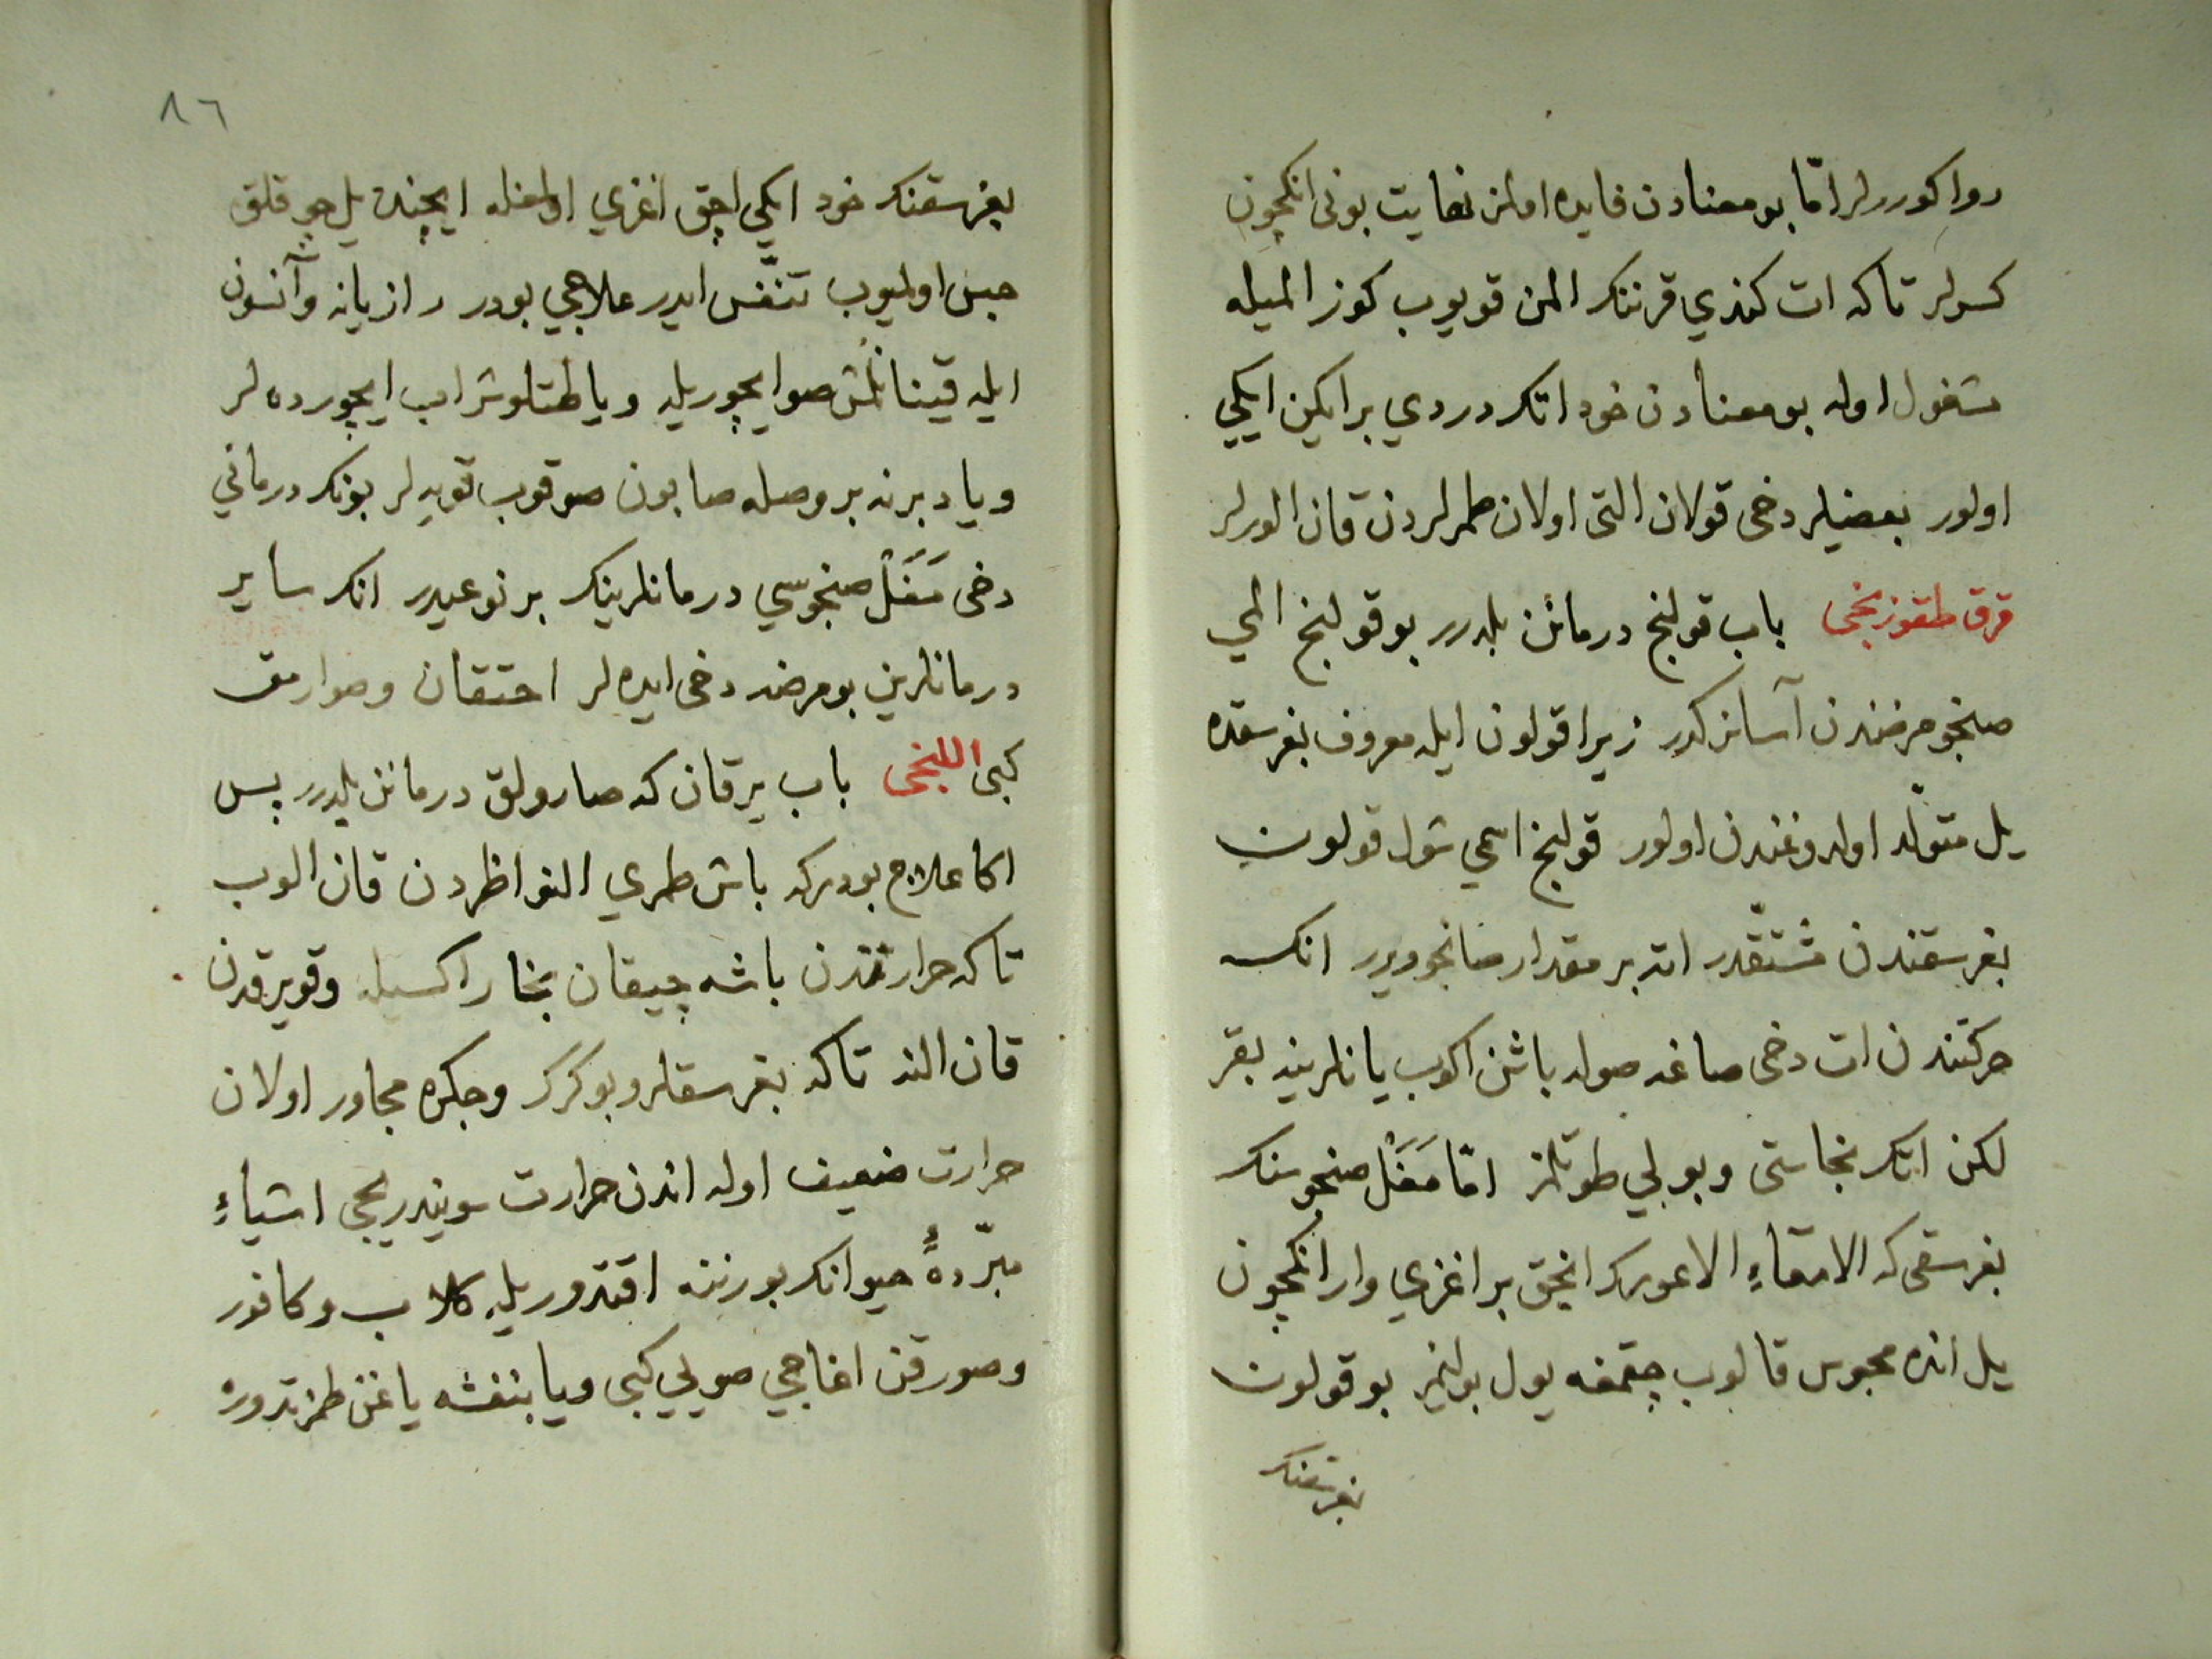 روا كوررلر امّا بو معنادن فايده اولمز نهايت بونى انكچون
كسرلر تاكه ات كندي قرننك المن قويوب كوز الميله
مشغول اوله بو معنادن خود اتك دردي بر ايكن ايكي
اولور بعضيلر دخى قولان التى اولان طمرلردن قان الورلر
قرق طقوزنجى باب قولنج درمانن بلدرر بو قولنج المي
صنجو مرضندن آسانركدر زيرا قولون ايله معروف بغرسقده
يل متولّد اولدوغندن اولور قولنج اسمي شول قولون
بغرسقندن مُشتقّدر اته بر مقدار صانجو ويرر انك
حركتندن ات دخى صاغه صوله باشن اكوب يانلرينه بقر
لكن اتك نجاستى وبولي طوتلمز امّا مَغَلْ صنجوسنك
بغرسقى كه الامعاءِ الاعوردر انجق بر اغزي وار انكچون
يل انده محبوس قالوب چقمغه يول بولنمز بو قولون
بغرسقنك
٨٦
بغرسقنك خود ايكي اچق اغزي اولمغله ايچنده يل چوقلق
حبس اولميوب تنفّس ايدر علاجي بودر رازيانه وآنسون
ايله قينانلمش صو ايچوريله ويا طتلو شراب ايچورده لر
ويا دبرنه بر وصله صابون صوقوب قويه لر بونك درمانى
دخى مَغَلْ صنجوسي درمانلرينك بر نوعيدر انك ساير
درمانلرين بو مرضه دخى ايده لر احتقان وصوارمق
كبى اللنجى باب يرقان كه صارولق درمانن بلدرر پس
اكا علاج بودركه باش طمري النواظردن قان الوب
تاكه حرارتدن باشه چيقان بخار اكسيله وقويرقدن
قان النه تاكه بغرسقلر وبوكرك وجكره مجاور اولان
حرارت ضعيف اوله اندن حرارت سويندريجى اشياءِ
مبرّدهٔ حيوانك بورننه اقتدوريله كلاب وكافور
وصورقن اغاجي صويي كبى ويا بنفشه ياغن طمزتدوره